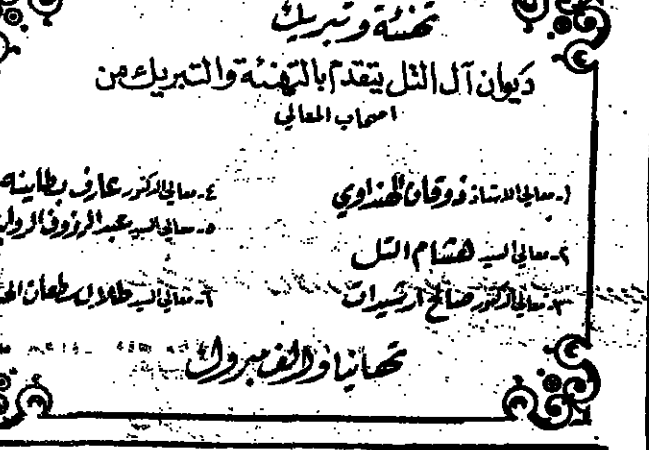 تهنئة وتبريك
ديوان آل التل يتقدم بالتهنئة والتبريك من
اصحاب المعالي
١- معالي الاستاذ ذوقان الهنداوي
٢- معالي السيد هشام التل
٣- معالي الدكتور صالح ارشيدات
٤- معالي الدكتور عارف بطاينه
٥- معالي السيد عبد الرؤوف الروا
٦- معالي السيد طلال سطعان
تهانينا والف مبروك